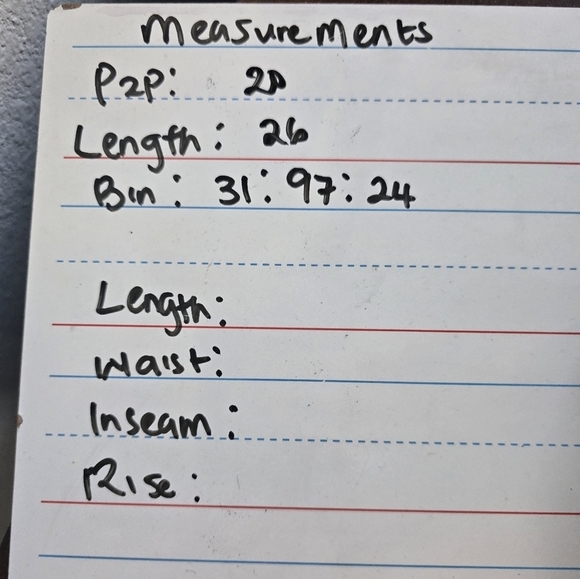 Measurements
P2P: 20
Length: 26
Bin: 31:97:24
Length:
Waist:
Inseam:
Rise: